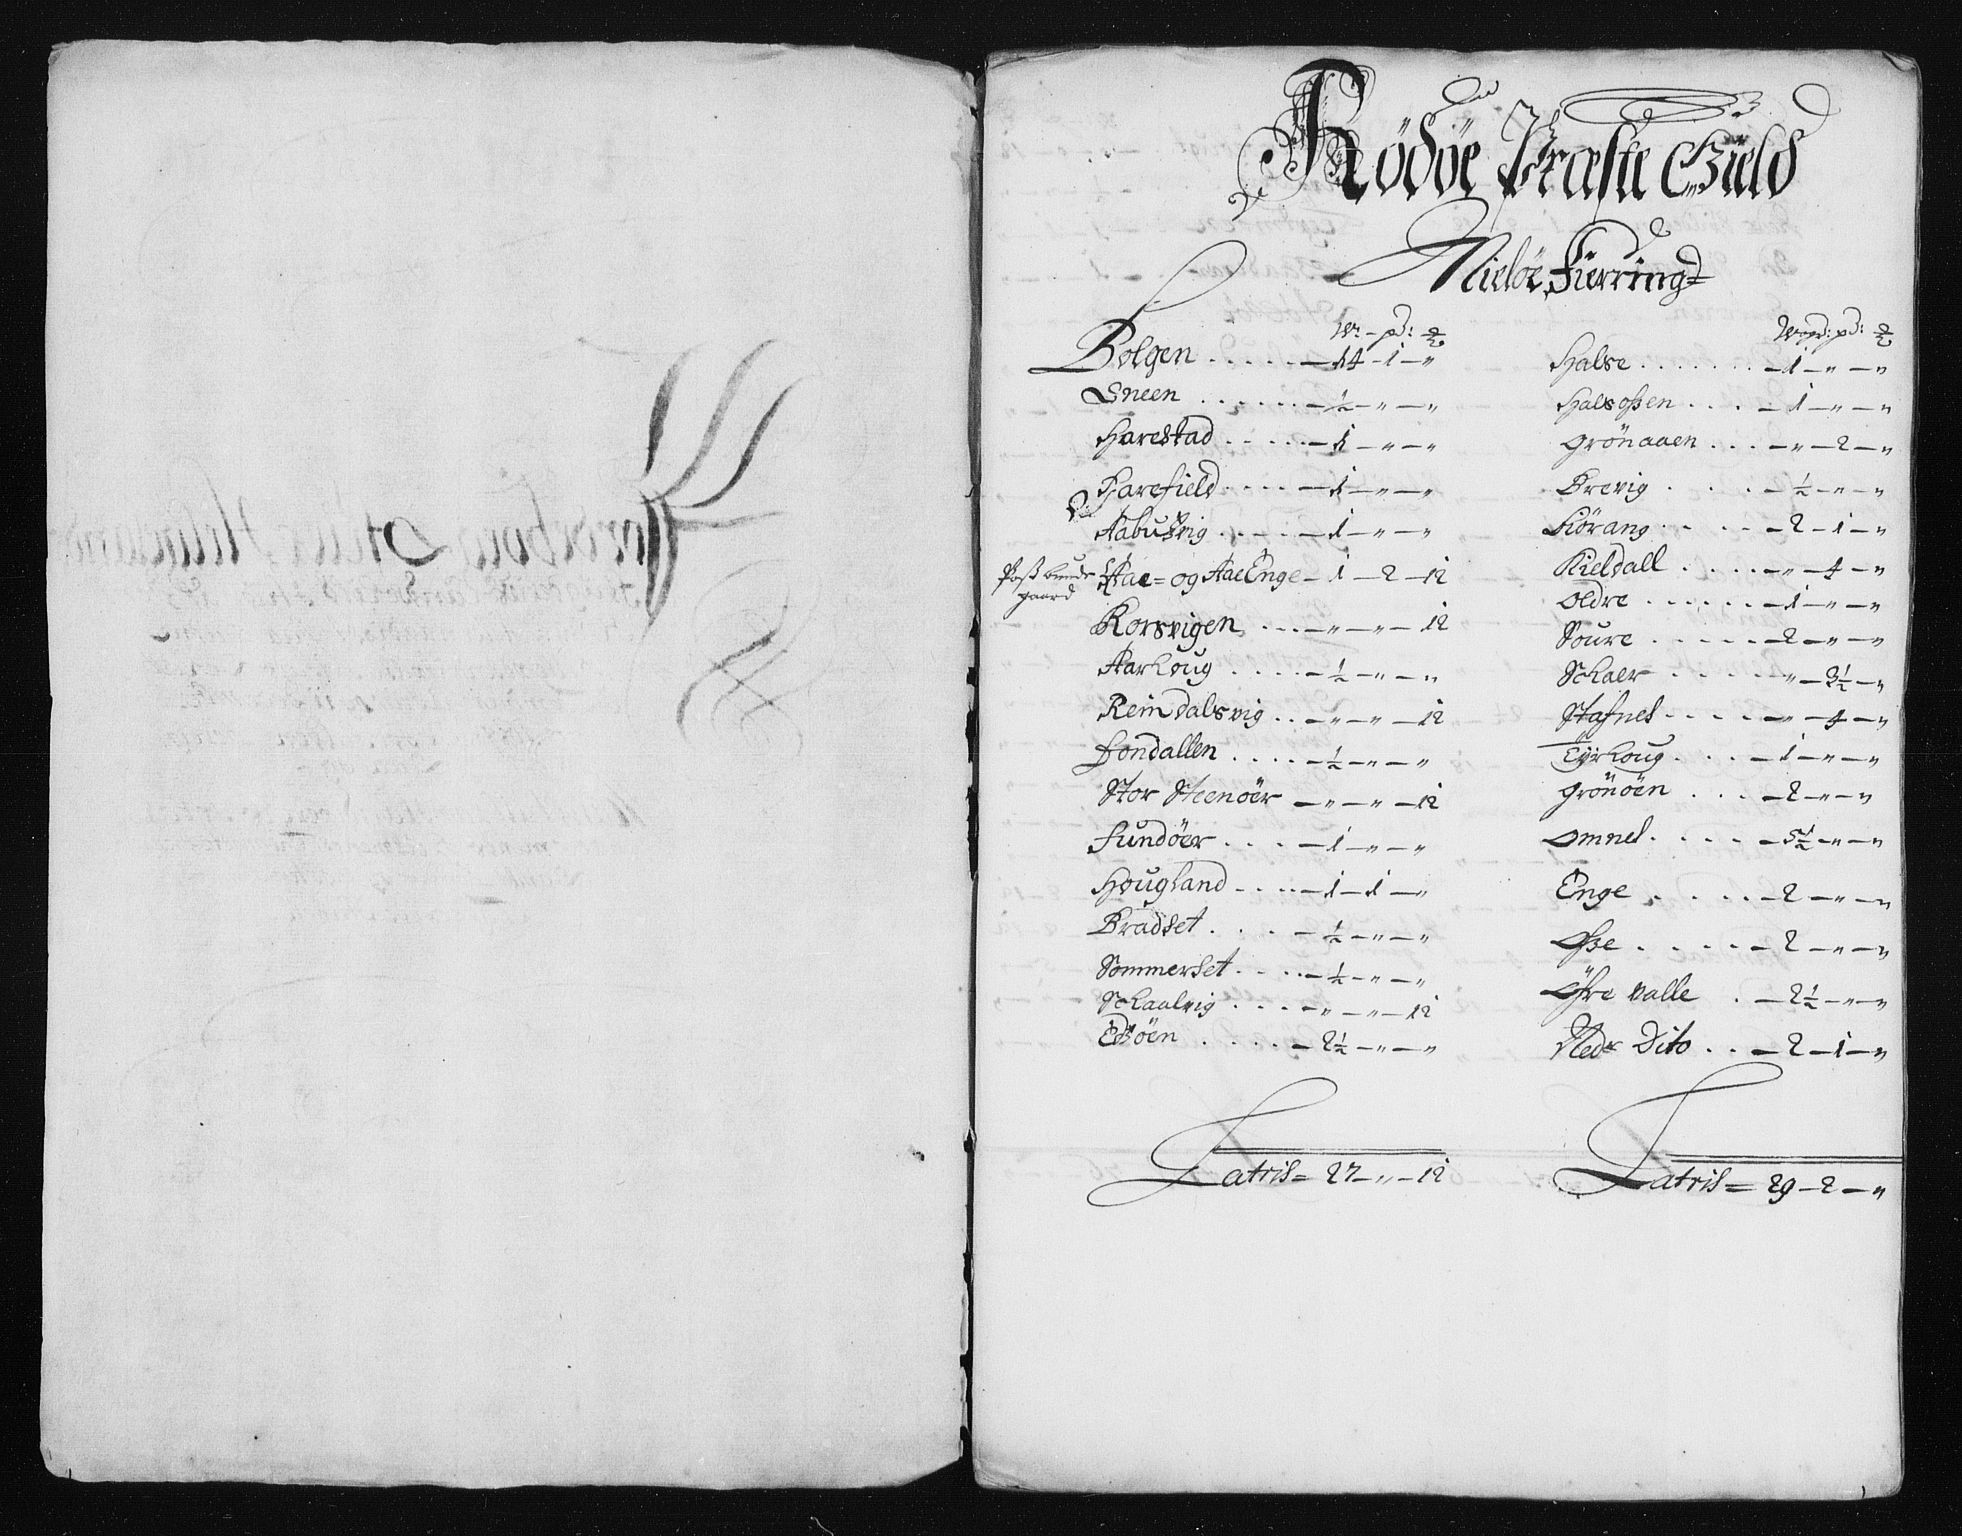 Rödöe Præste Gield
Mielöe Fierring
W: - pd: ℔
Bolgen . . . . . - 14 - 1 - "
Sneen . . . . . . - ½ - " - "
Harestad . . . . . - 1 - " - "
Farefield . . . . - 1 - " - "
Aabußvig . . . . . - 1 - " - "
Postbunde gaard Aae = og Aae Enge - 1 - 2 - 12
Korsvigen . . . - " - " - 12
Aarhoug . . . . - ½ - " - "
Reindalsvig . . - " - " - 12
Fondallen . . . . - ½ - " - "
Stor Steenöer - " - " - 12
Sundöer . . . . - 1 - " - "
Hougland . . . . - 1 - 1 - "
Bradset . . . . - ½ - " - "
Sommerset . . . . - ½ - " - "
Schaalvig . . . . - " - " - 12
Edöen . . . . - 2½ - " - "
Latris = 27 - " - 12
Wogd: pd: ℔
Halse . . . . . . . - 1 - " - "
Halsoßen . . . . - 1 - " - "
Grönaaen . . . - " - 2 - "
Brevig . . . . - ½ - " - "
Fiörang . . . . . - 2 - 1 - "
Kieldall . . . . - " - 4 - "
Oldre . . . . . . - 1 - " - "
Soure . . . . . - 2 - " - "
Schaer . . . . . " - 3½ - "
Stafnes . . . . . - " - 4 - "
Tyrhoug . . . . - 1 - " - "
Grönöen . . . - 2 - " - "
Omnes . . . . . - 5½ - " - "
Enge . . . . . - 2 - " - "
Oße . . . . . - 2 - " - "
Öfre Valle . - 2½ - " - "
Nedr Dito . . - 2 - 1 - "
Latris = 29 - 2 - "